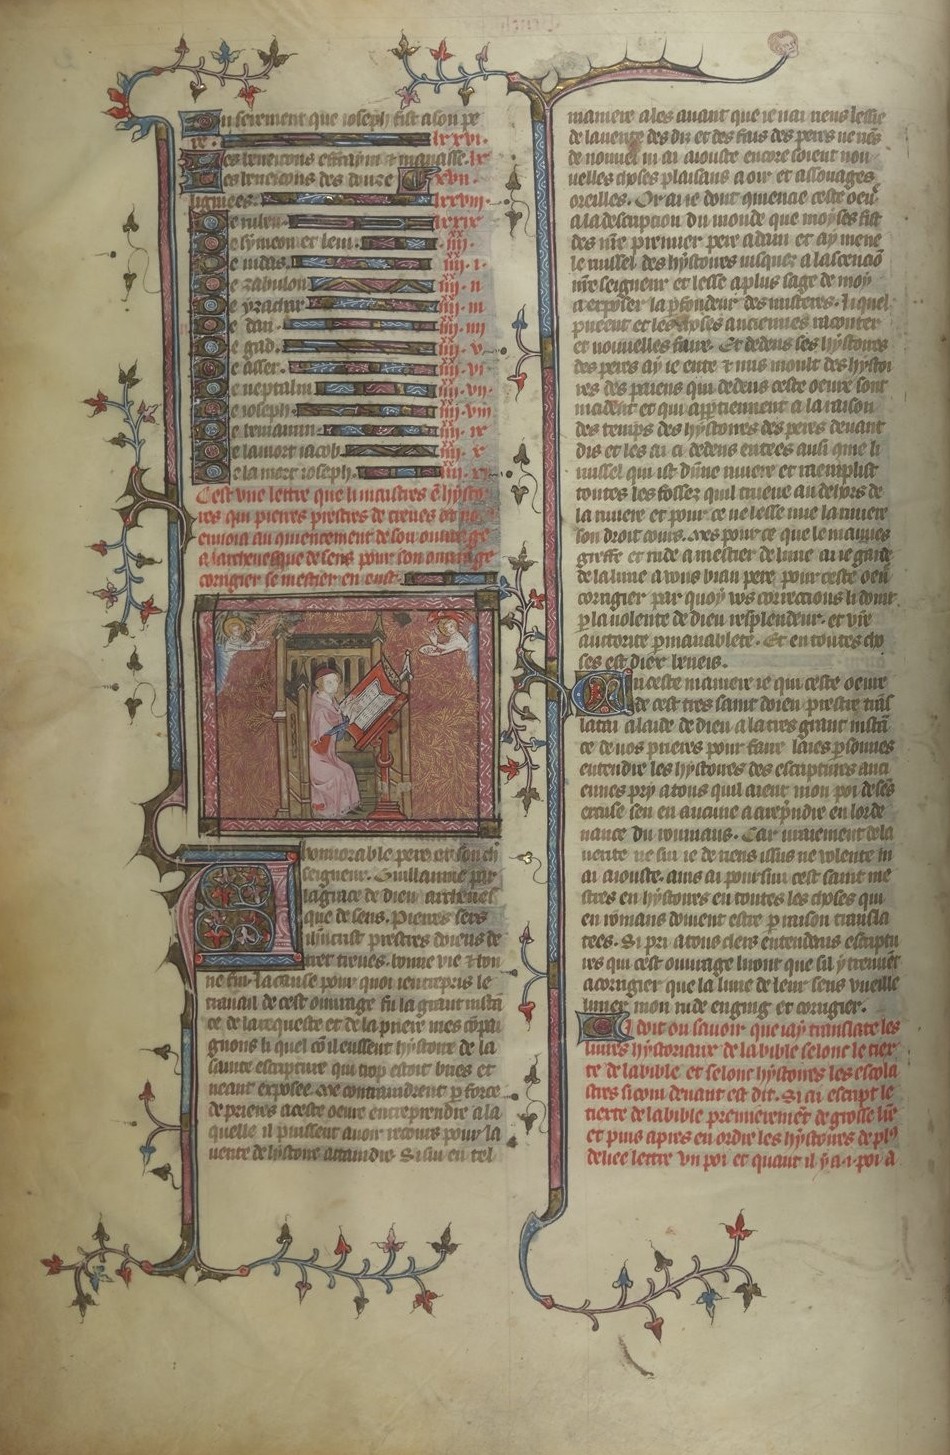 Du serement que ioseph fist a son pe
re. lxxvi.
Des beneicons effraym et manasse. lx
Des beneicons des douze xvii.
lignees. lxxviii.
De ruben. lxxix
De symeon et leui. iiii.
De iudas. iiii. i.
De zabulon iiii. ii
De yzacar iiii. iii
De dan. iiii. iiii
De gad. iiii. v.
De asser. iiii. vi
De neptalin iiii. vii.
De ioseph. iiii. viii
De beniamin. iiii. ix
De la mort iacob. iiii. x
De la mort ioseph.
Cest vne lettre que li maistres
res qui pierres prestres de troies
enuoia au quiencement de son ouurage
a larcheuesque de sens pour son ouurage
corrigier se mestier en eust.
A honnorable pere et son ch
seigneur. Guillaume par
la grace de dieu archeues
que de sens. Pierres sers
ihucrist prestres doiens de
troies. bonne vie et bon
ne fin. La cause pour quoi ientrepris le
trauail de cest ouurage fu la grant insta
ce de la requeste et de la priere mes cõpai
gnons li quel cõ il eussent hystoire de la
sainte escripture qui trop estoit bries et
neant exposee. Me contraindrent p force
de prieres a ceste oeure entreprendre a la
quelle il puissent auoir recours pour la
uerite de lystoire attaindre. Si sui en tel
maniere a les auant que ie nai mens lesse
de la uerite des diz et des fais des peres
de nouuel ni ai aiouste encore soient nou
uelles choses plaisans a oir et assouages
oreilles. Or ai ie dont quience ceste oeu
a la description du monde que moyses fist
des nre premier pere adam et ay mene
le ruissel des hystoires iusquez a lascencõ
nre seigneur et lesse a plus sage de moy
a exposer la pfondeur des misteres.
pueent et les choses anciennes raconter
et nouuelles faire. Et dedens ses hystoires
des peres ay ie ente et mis moult des hystoi
res des paiens qui dedens ceste oeure sont
incident et qui apptiennent a la raison
des temps des hystoires des peres deuant
dis et les ai ci dedens entees ausi qme li
ruissel qui ist dune riuiere et raemplist
toutes les fossez quil trueue au dehors de
la riuiere et pour ce ne lesse mie la riuiere
son droit cours. Mes pour ce que le mauues
greffe et rude a mestier de lime ai ie garde
de la lime a vous biau pere pour ceste oeu
corrigier par quoy vos corrections li doint
p la volente de dieu resplendeur. et vie
auctorite pmanablete. Et en toutes cho
ses est diex beneis.
En ceste maniere ie qui ceste oeure
de cest tres saint doien prestre trãs
latai a laide de dieu a la tres grant instã
ce de uos prieres pour faire laies psonnes
entendre les hystoires des escriptures anci
ennes pry a touz quil aient mon poi de sens
escuse sen en aucune a reprendre en lorde
nance du roumans. Car uraiement de la
uerite ne sui ie de riens issus ne volente ni
ai aiouste. ains ai poursiui cest saint me
stres en hystoires en toutes les choses qui
en romans doiuent estre p raison transla
tees. Si pri a touz clers entendens escriptu
res qui cest ouurage liront que sil y treuuent
a corrigier que la lime de leur sens vueille
limer mon rude enging et corrigier.
Ci doit on sauoir que iay translate les
liures hystoriaux de la bible selonc le tiex
te de la bible et selonc hystoires les escola
stres si com deuant est dit. Si ai escript le
tiexte de la bible premierement de grosse lre
et puis apres en ordre les hystoires de pl9
deliee lettre vn poi et quant il y a .i. poi a